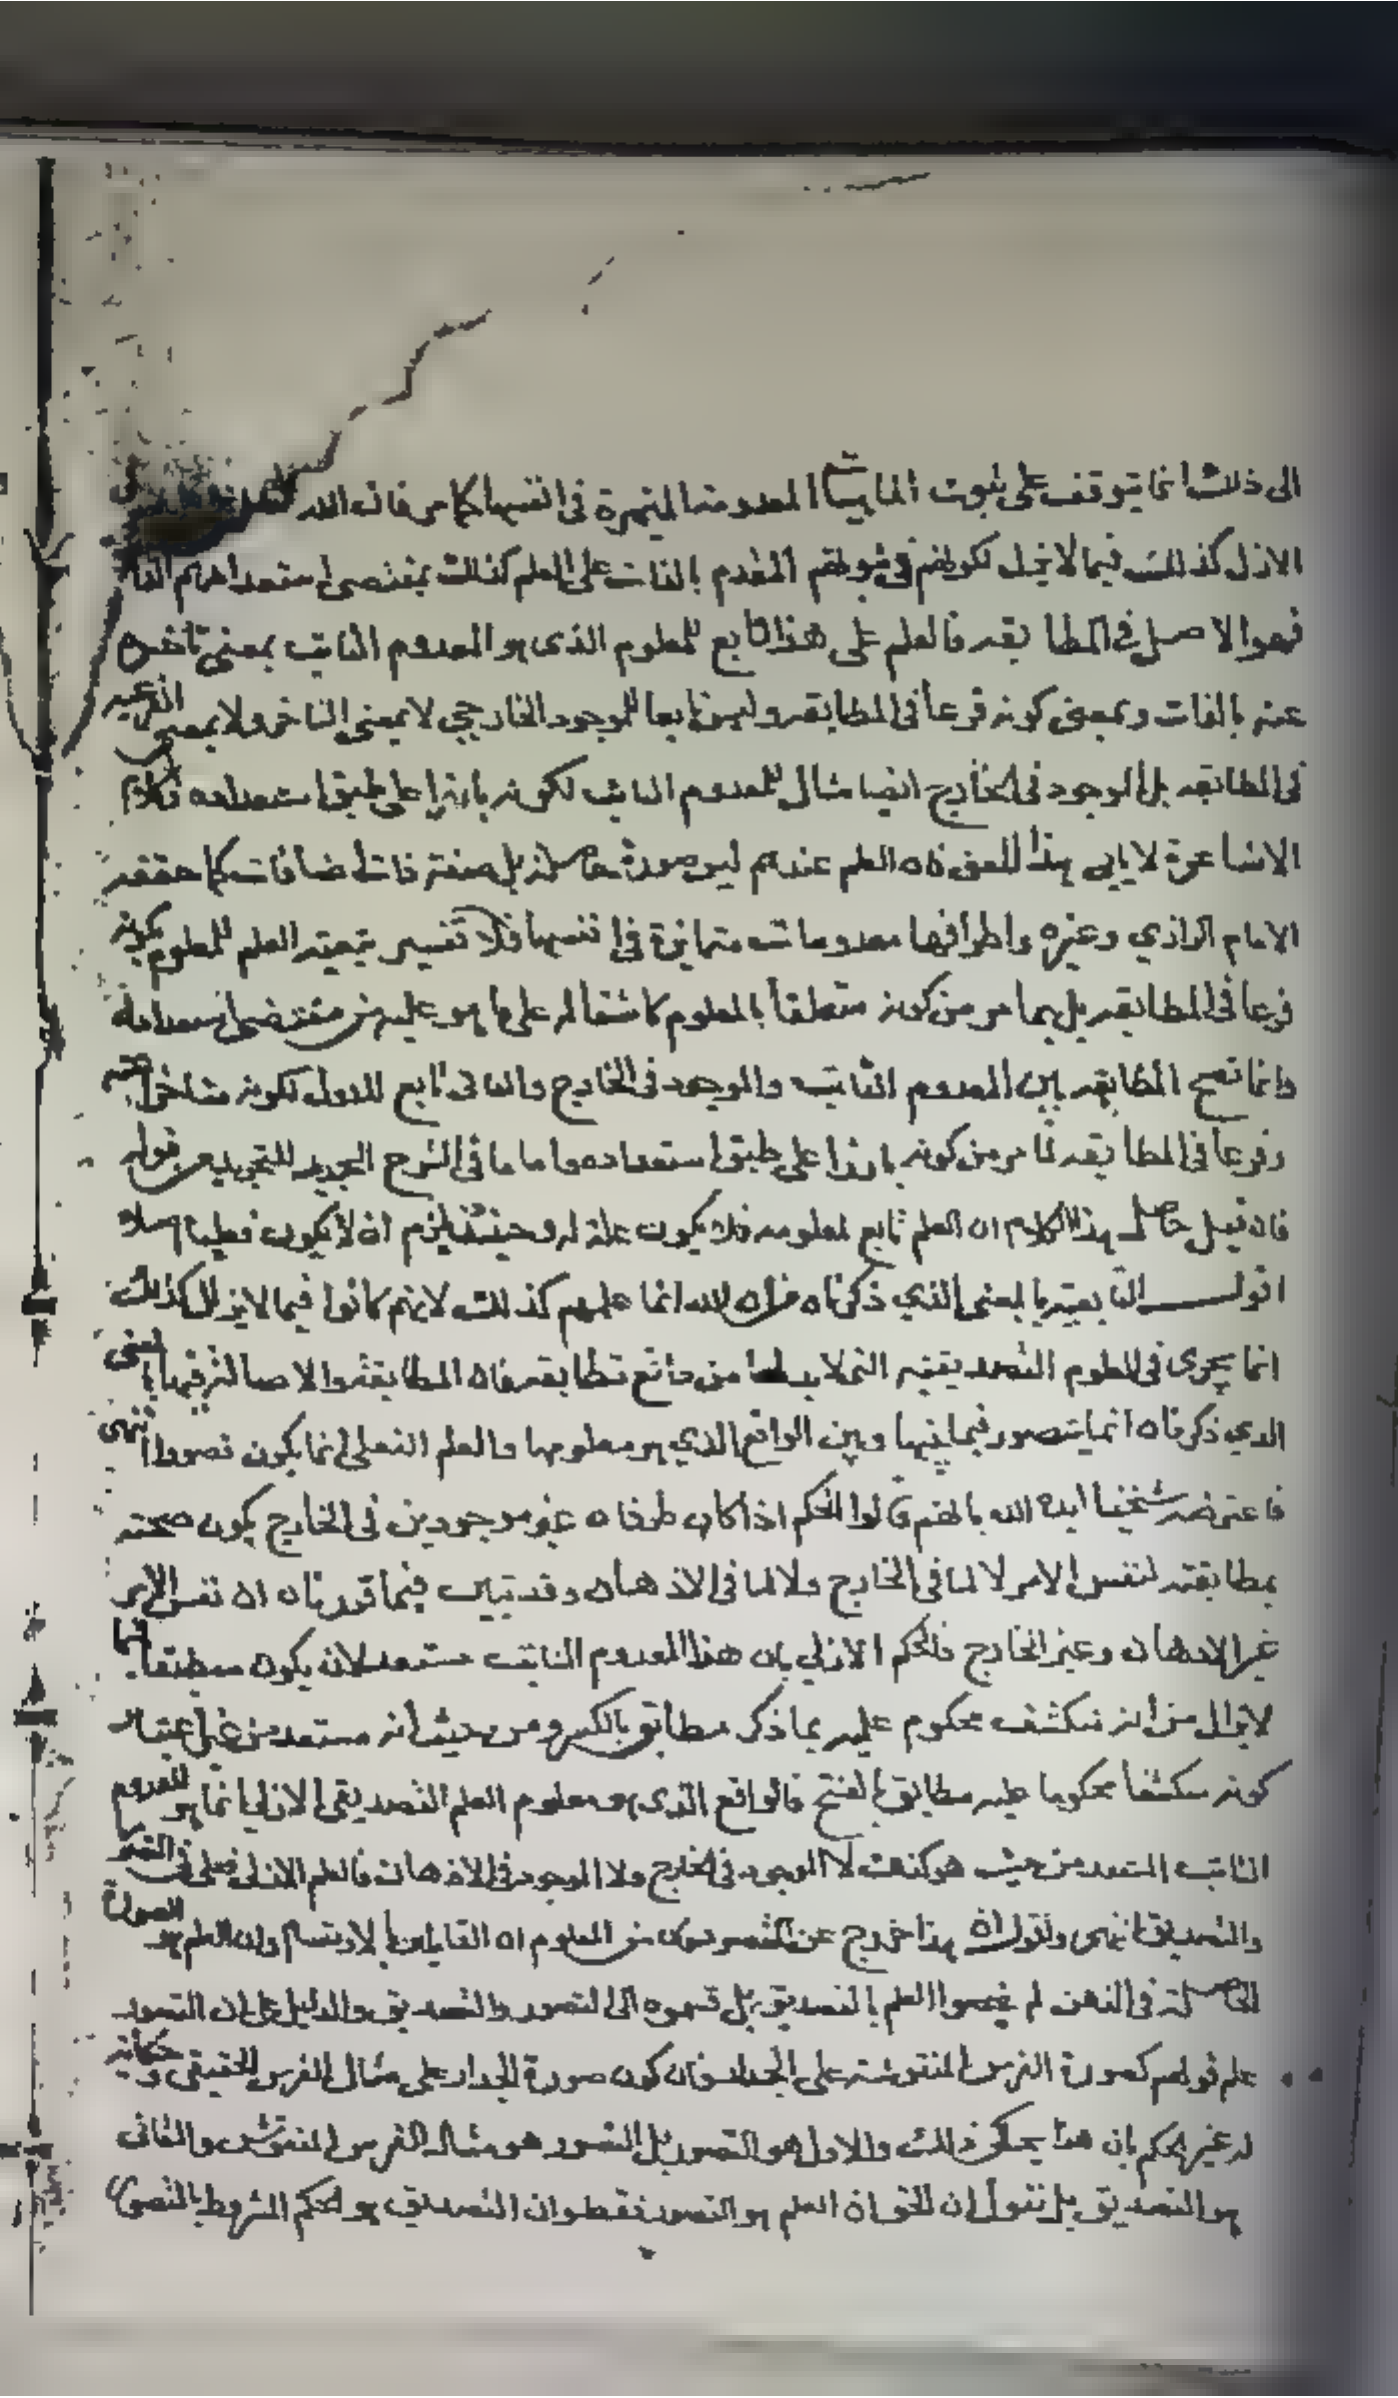 الى ذلك انما يتوقف على ثبوت الماهيات المعدومة المتميزة في انفسها كما مر فان الله
الازل كذلك فيما لا يزل لكونهم في ثبوتهم المقدم بالذات على العلم كذلك بمقتضى استعدادهم الذا
فهو الاصل في المطا بقه فالعلم على هذا تابع للمعلوم الذي هو المعدوم الثابت بمعنى تاخره
عنه بالذات وبمعنى كونه فرعا في المطابقه وليس تابعا للموجود الخارجي لا بمعنى التاخر ولا بمعنى الفرعيه
في المطابقه بل الموجود في الخارج ايضا مثال للمعدوم الثابت لكونه بارزا على طبق استعداده وكلام
الاشاعرة لا يابى هذا المعنى فان العلم عندهم ليس صورة حاصلة بل صفة ذات اضافات كما حققه
الامام الرازي وغيره واطرافها معدومات متمايزة في انفسها فلا تفسير تبعية العلم للمعلوم بكونه
فرعا في المطابقه بل بما مر من كونه متعلقا بالمعلوم كاشفا له على ما هو عليه من مقتضى استعداده
وانما تصح المطابقه بين المعدوم الثابت والموجود في الخارج والثاني تابع للاول لكونه متاخرا عنه
وفرعا في المطا بقه لما مر من كونه بارزا على طبق استعداده واما ما في الشرح الجديد للتجريد من قوله
فان قيل حاصل هذا الكلام ان العلم تابع لمعلومه فلا يكون علة له وحينئذ يلزم ان لا يكون فعليا اصلا
اقول التابعية بالمعنى الذي ذكرناه من ان الله انما علمهم كذلك لانهم كانوا فيما لا يزال كذلك
انما يجرى في العلوم التصديقيه التي لا بد لها من واقع تطابقه فان المطابقة والاصالة فيها بالمعنى
الذي ذكرناه انما يتصور فيما بينها وبين الواقع الذي هو معلومها والعلم الفعلي انما يكون تصورا انتهى
فاعترضه شيخنا ايده الله بانهم قالوا الحكم اذا كان طرفاه غير موجودين في الخارج يكون صحته
بمطابقته لنفس الامر لا لما في الخارج ولا لما في الاذهان وقد تبين فيما قررناه ان نفس الامر
غير الاذهان وغير الخارج فالحكم الازلي بان هذا المعدوم الثابت مستعد لان يكون
لا يزال من انه منكشف محكوم عليه بما ذكر مطابق بالكسر ومن حيث انه مستعد من غير اعتبار
كونه منكشفا محكوما عليه مطابق بالفتح فالواقع الذي هو معلوم العلم التصديقي الازلي انما هو المعدوم
الثابت المستعد من حيث هو كذلك لا الموجود في الخارج ولا الموجود في الاذهان فالعلم الازلي فعلي في التصور
والتصديق انتهى ونقول ان هذا خروج عن المقصود فان من المعلوم ان القايلين بالارتسام وان العلم هو الصورة
الحاصلة في الذهن لم يخصوا العلم بالتصديق بل قسموه الى التصور والتصديق والدليل على ان التصور
علم قولهم كصورة الفرس المنقوشة على الجدار فان كون صورة الجدار على مثال الفرس الحقيقي وحكايته
له غير الحكم بان هذا يحكي ذلك والاول هو التصور بل التصور هو مثال الفرس المنقوش والثاني
هو التصديق بل نقول ان الحق ان العلم هو التصور فقط وان التصديق هو الحكم المشروط بالتصور